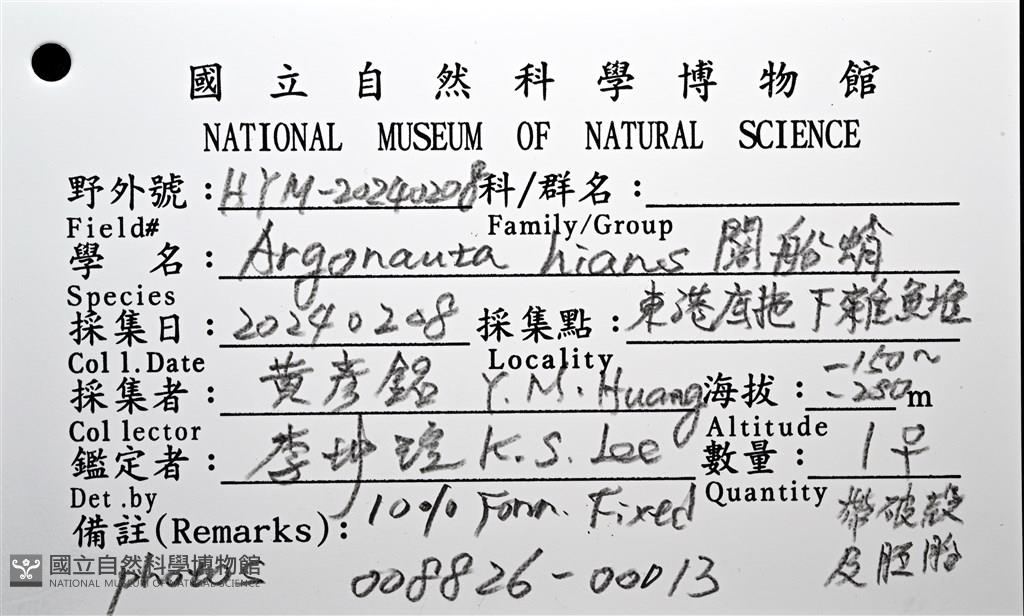 國立自然科學博物館
NATIONAL MUSEUM OF NATURAL SCIENCE
野外號：HYM-20240208 科/群名：
Field# Family/Group
學　名：Argonauta hians 闊船蛸
Species
採集日：20240208 採集點：東港底拖下雜魚堆
Coll.Date Locality
採集者：黃彥銘 Y.M. Huang 海拔：-150~-250 m
Collector Altitude
鑑定者：李坤瑄 K.S. Lee 數量：1♀
Det.by Quantity
帶破殼及胚胎
備註(Remarks)：10% Form. Fixed
photo-
008826-00013
國立自然科學博物館
NATIONAL MUSEUM OF NATURAL SCIENCE